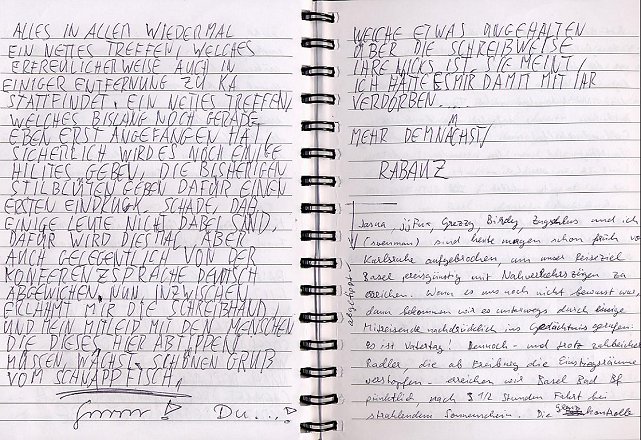 ALLES IN ALLEM WIEDERMAL
EIN NETTES TREFFEN, WELCHES
ERFREULICHERWEISE AUCH IN
EINIGER ENTFERNUNG ZU KA
STATTFINDET. EIN NETTES TREFFEN,
WELCHES BISLANG NOCH GERADE
EBEN ERST ANGEFANGEN HAT,
SICHERLICH WIRD ES NOCH EINIGE
HILITES GEBEN, DIE BISHERIGEN
STILBLÜTEN GEBEN DAFÜR EINEN
ERSTEN EINDRUCK. SCHADE, DAß
EINIGE LEUTE NICHT DABEI SIND,
DAFÜR WIRD DIESMAL ABER
AUCH GELEGENTLICH VON DER
KONFERENZSPRACHE DEUTSCH
ABGEWICHEN. NUN, INZWISCHEN
ERLAHMT MIR DIE SCHREIBHAND,
UND MEIN MITLEID MIT DEN MENSCHEN
DIE DIESES HIER ABTIPPEN
MÜSSEN, WÄCHST. SCHÖNEN GRUß
VOM SCHNAPPFISCH,
Du...!
WELCHE ETWAS UNGEHALTEN
ÜBER DIE SCHREIBWEISE
IHRE NICKS IST. SIE MEINT,
ICH HÄTTE ES MIR DAMIT MIT IHR
VERDORBEN....
MEHR DEMNÄCHST,
RABAUZ
abgetippt
Jasna, Grezzy, Birdy, Zugschlus und ich
sind heute morgen schon früh von
Karlsruhe aufgebrochen um unser Reiseziel
Basel preisgünstig mit Nahverkehrszügen zu
erreichen. Wenn es uns noch nicht bewusst war,
dann bekommen wir es unterwegs durch einige
Mitreisende nachdrücklich ins Gedächtnis gerufen:
Es ist Vatertag! Dennoch - und trotz zahlreicher
Radler, die ab Freiburg die Einstiegsräume
verstopfen - erreichen wir Basel Bad Bf
pünktlich nach 3 1/2 Stunden Fahrt bei
strahlendem Sonnenschein. Die Grenzkontrolle